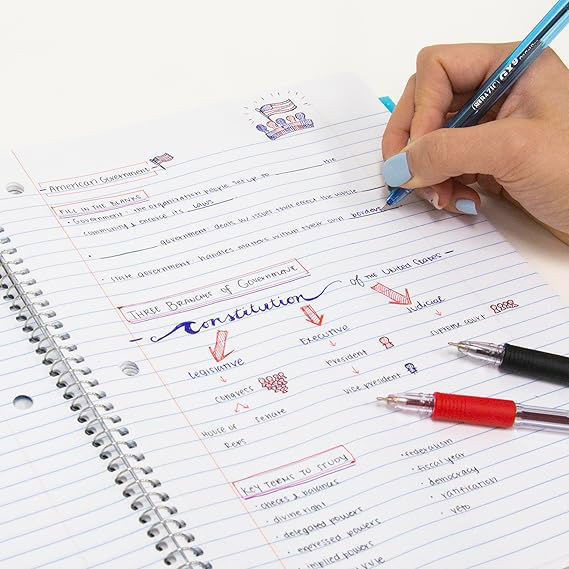 American Government
Fill in the Blanks
• Government: the organization people set up to ______ the
community & enforce its laws
• ______ government deals w/ issues that effect the whole
• State government handles matters within their own borders
Three Branches of Government
Constitution of the United States
Legislative Executive Judicial
Congress President Supreme Court
House of Reps Senate Vice President
Key Terms to Study
• checks & balances
• divine right
• delegated powers
• expressed powers
• implied powers
• federalism
• fiscal year
• democracy
• ratification
• veto